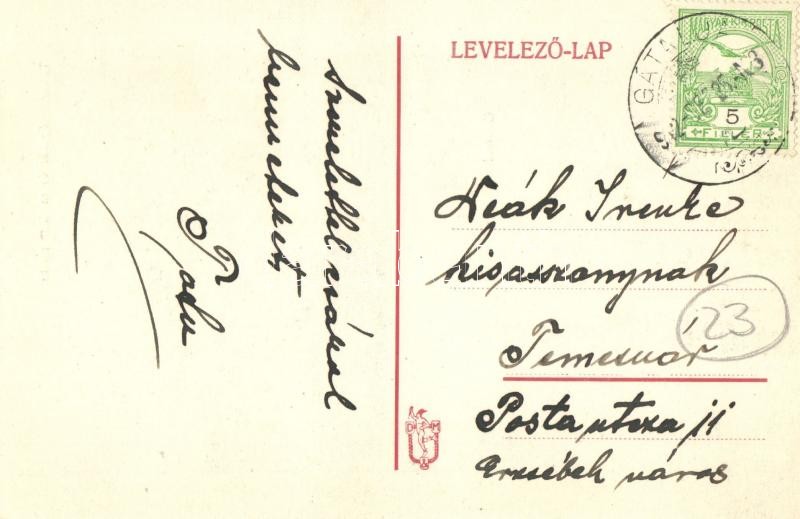 LEVELEZŐ-LAP
MAGYAR KIR. POSTA
GÁTALJA
5
FILLÉR
Szeretettel csókol
benneteket
Deák Irenke
kisasszonynak
Temesvár
23
Posta utcza 11
Erzsébet város
D M